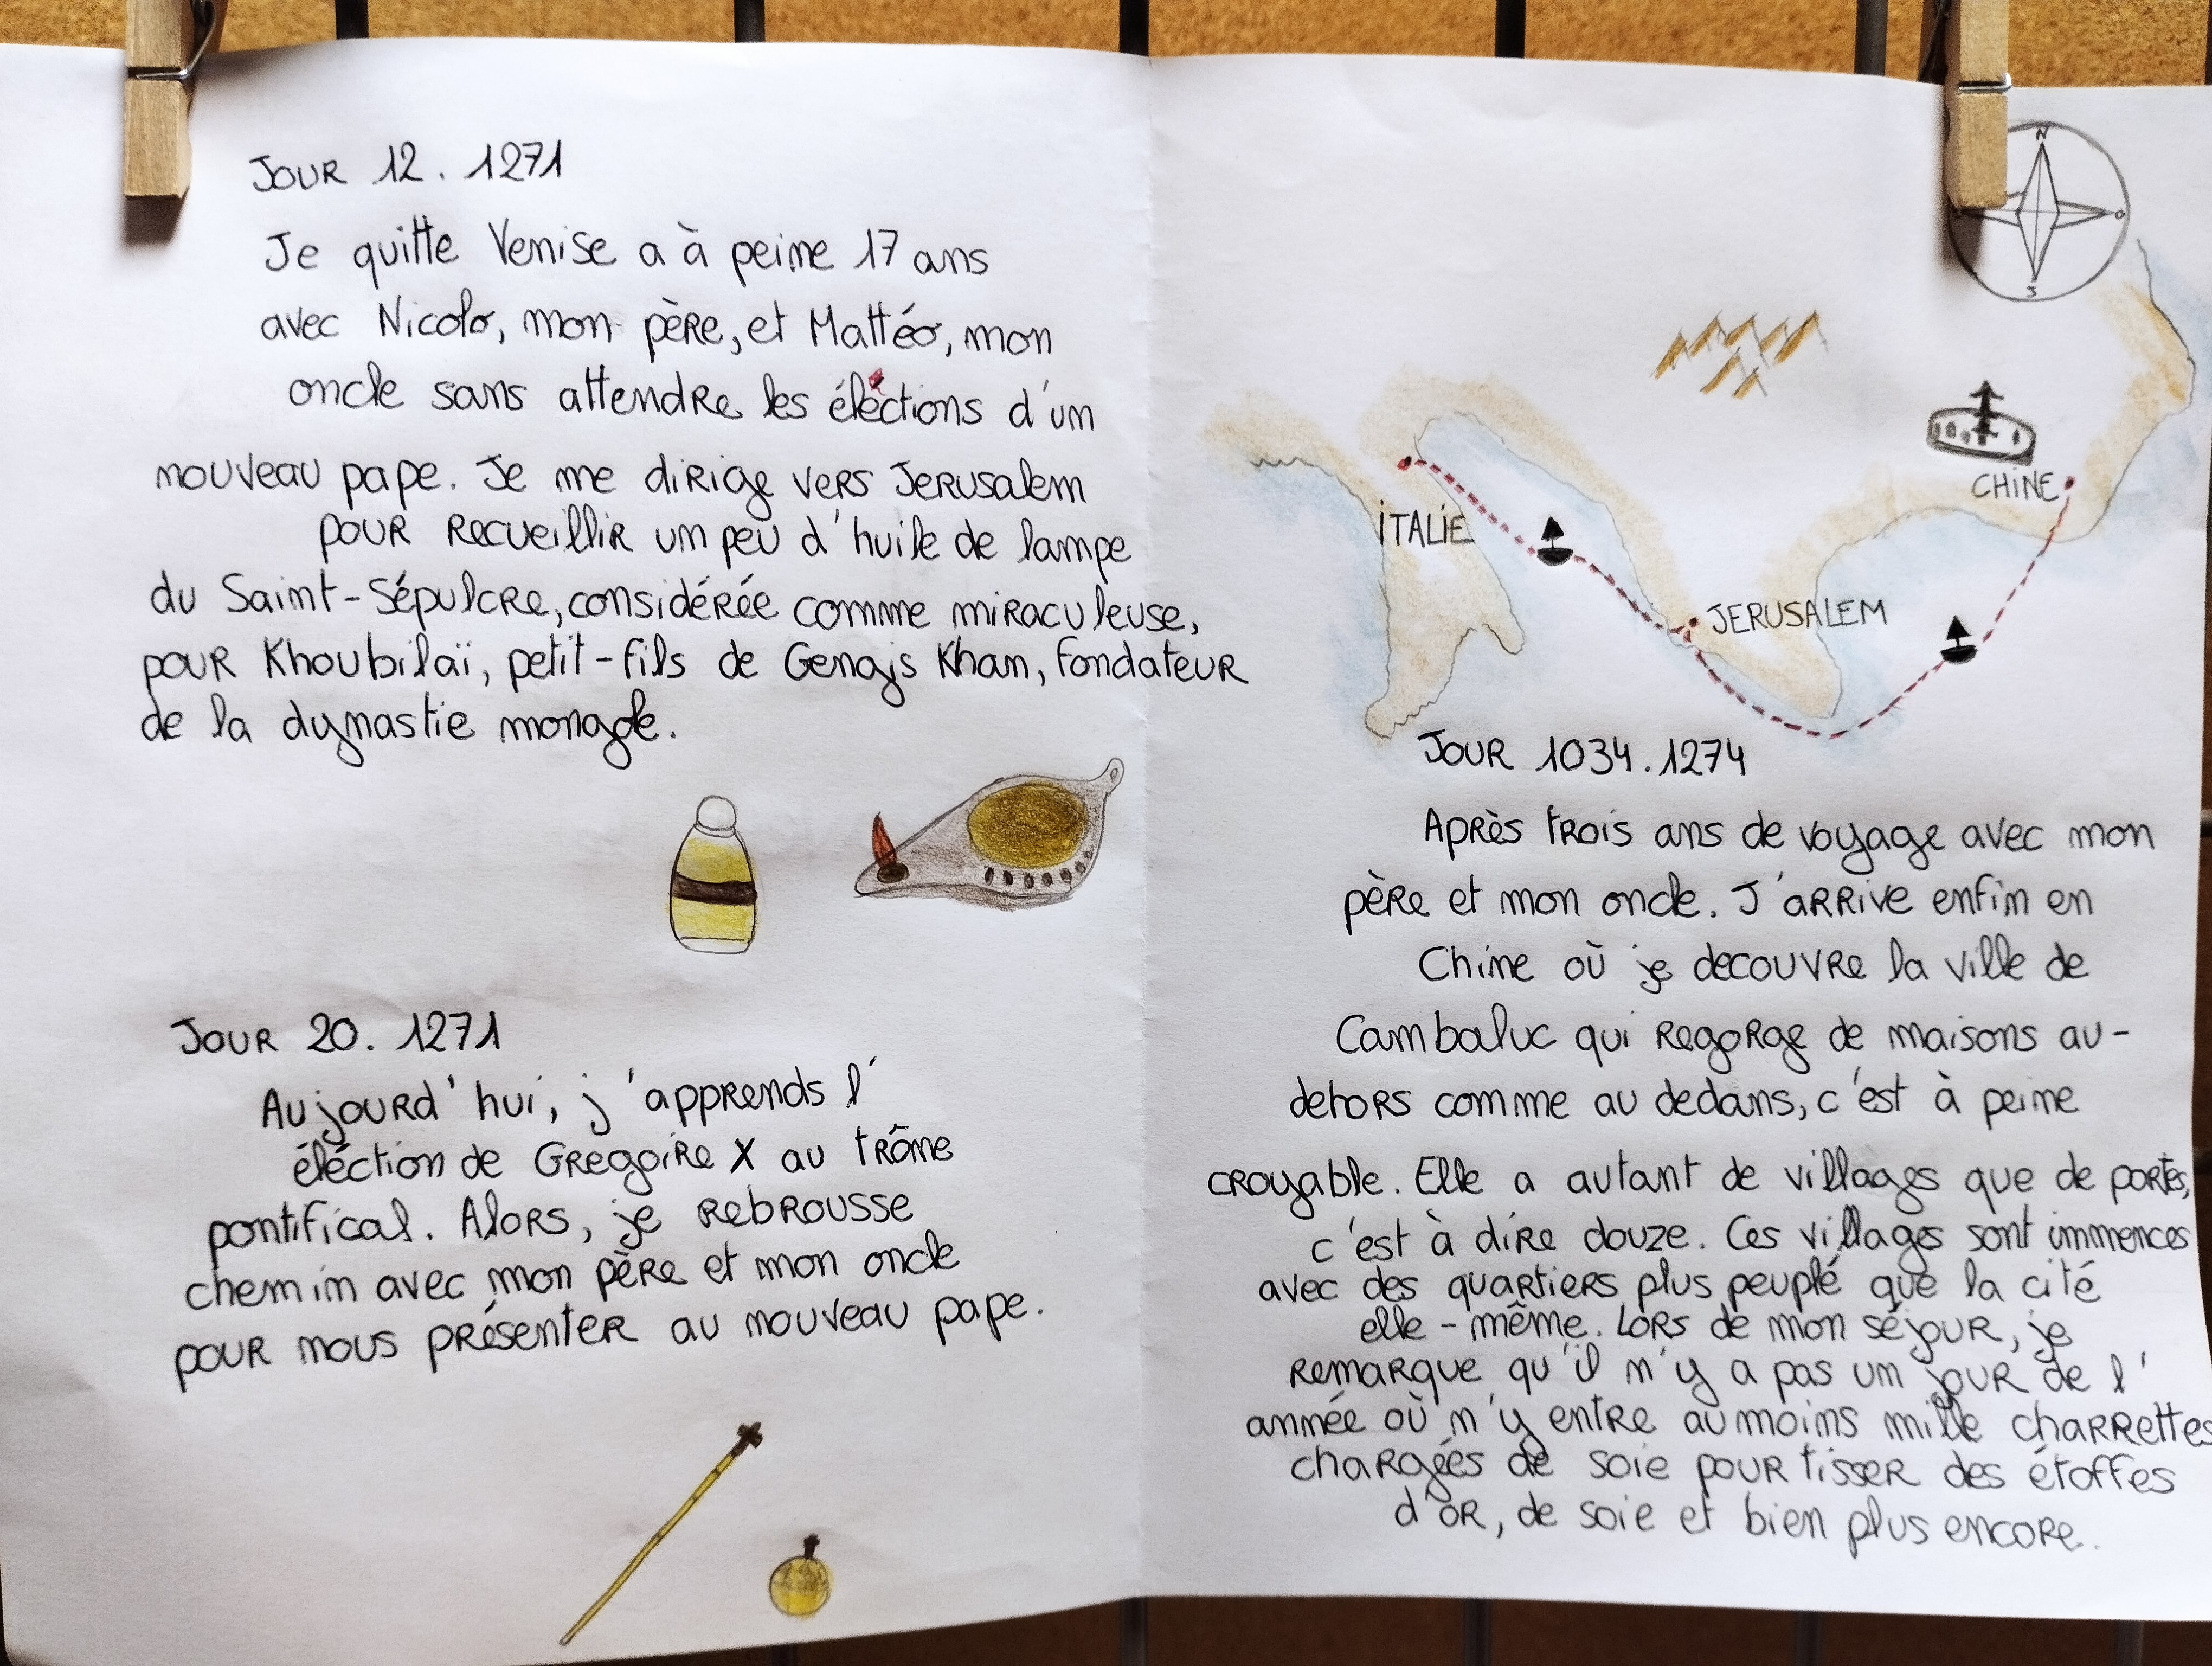 Jour 12. 1271
Je quitte Venise a à peine 17 ans
avec Nicolo, mon père, et Mattéo, mon
oncle sans attendre les éléctions d'un
nouveau pape. Je me dirige vers Jerusalem
pour recueillir un peu d'huile de lampe
du Saint-Sépulcre, considérée comme miraculeuse,
pour Khoubilaï, petit-fils de Gengis Khan, fondateur
de la dynastie mongole.
Jour 20. 1271
Aujourd'hui, j'apprends l'
éléction de Gregoire X au trône
pontifical. Alors, je rebrousse
chemin avec mon père et mon oncle
pour nous présenter au nouveau pape.
N
O
S
CHINE
ITALIE
JERUSALEM
Jour 1034. 1274
Après trois ans de voyage avec mon
père et mon oncle. J'arrive enfin en
Chine où je decouvre la ville de
Cambaluc qui regorge de maisons au-
dehors comme au dedans, c'est à peine
croyable. Elle a autant de villages que de portes,
c'est à dire douze. Ces villages sont immences
avec des quartiers plus peuplé que la cité
elle-même. Lors de mon séjour, je
remarque qu'il n'y a pas un jour de l'
année où n'y entre au moins mille charrettes
chargées de soie pour tisser des étoffes
d'or, de soie et bien plus encore.